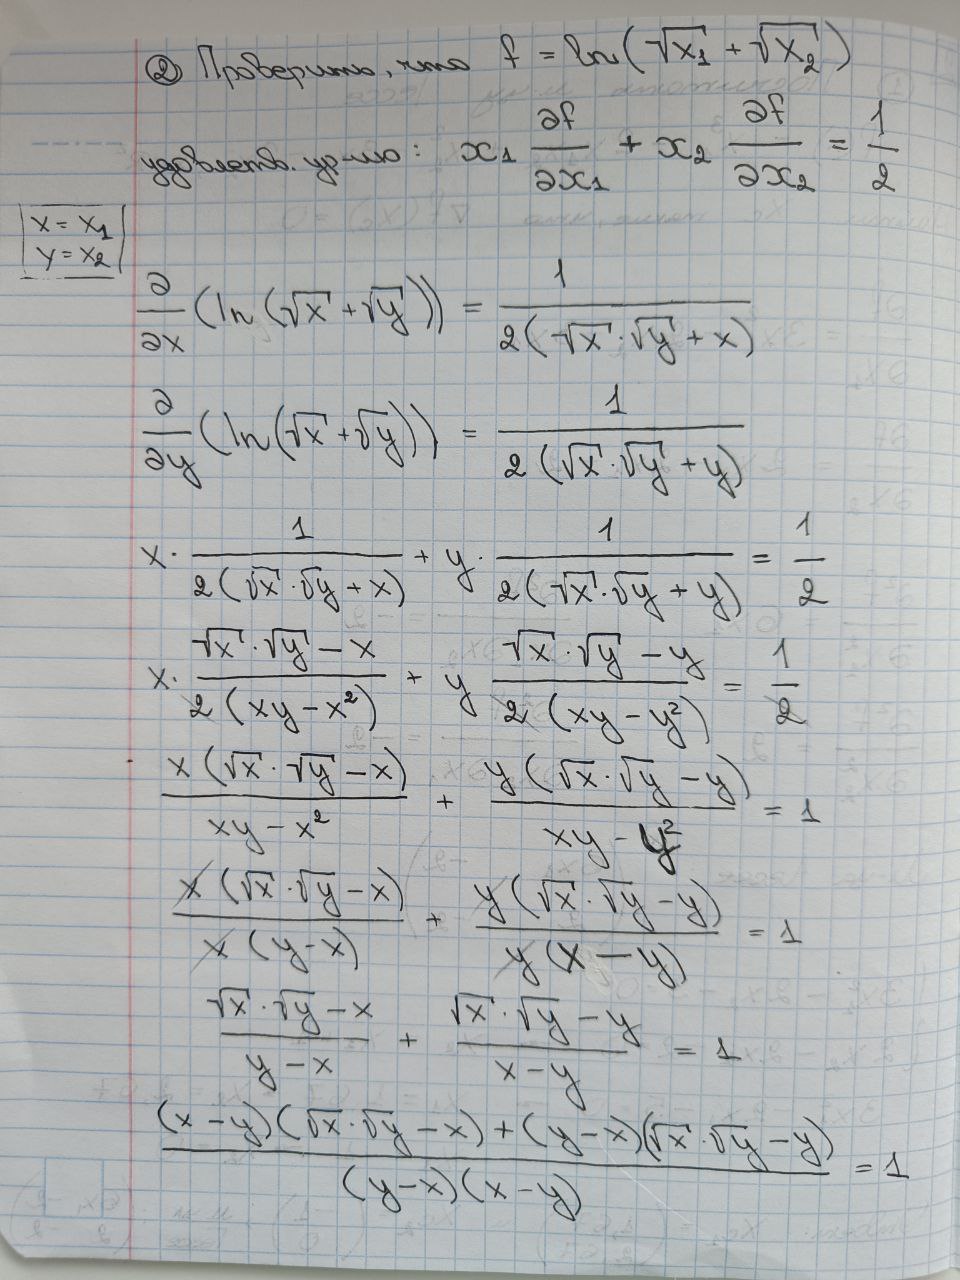 ② Проверить, что f = ln(√x₁ + √x₂)
удовлетв. ур-ию: x₁ ∂f/∂x₁ + x₂ ∂f/∂x₂ = 1/2
x = x₁
y = x₂
∂/∂x (ln(√x + √y)) = 1/(2(√x · √y + x))
∂/∂y (ln(√x + √y)) = 1/(2(√x · √y + y))
x · 1/(2(√x · √y + x)) + y · 1/(2(√x · √y + y)) = 1/2
x · (√x · √y − x)/(2(xy − x²)) + y (√x · √y − y)/(2(xy − y²)) = 1/2
x(√x · √y − x)/(xy − x²) + y(√x · √y − y)/(xy − y²) = 1
x(√x · √y − x)/(x(y − x)) + y(√x · √y − y)/(y(x − y)) = 1
(√x · √y − x)/(y − x) + (√x · √y − y)/(x − y) = 1
((x − y)(√x · √y − x) + (y − x)(√x · √y − y))/((y − x)(x − y)) = 1